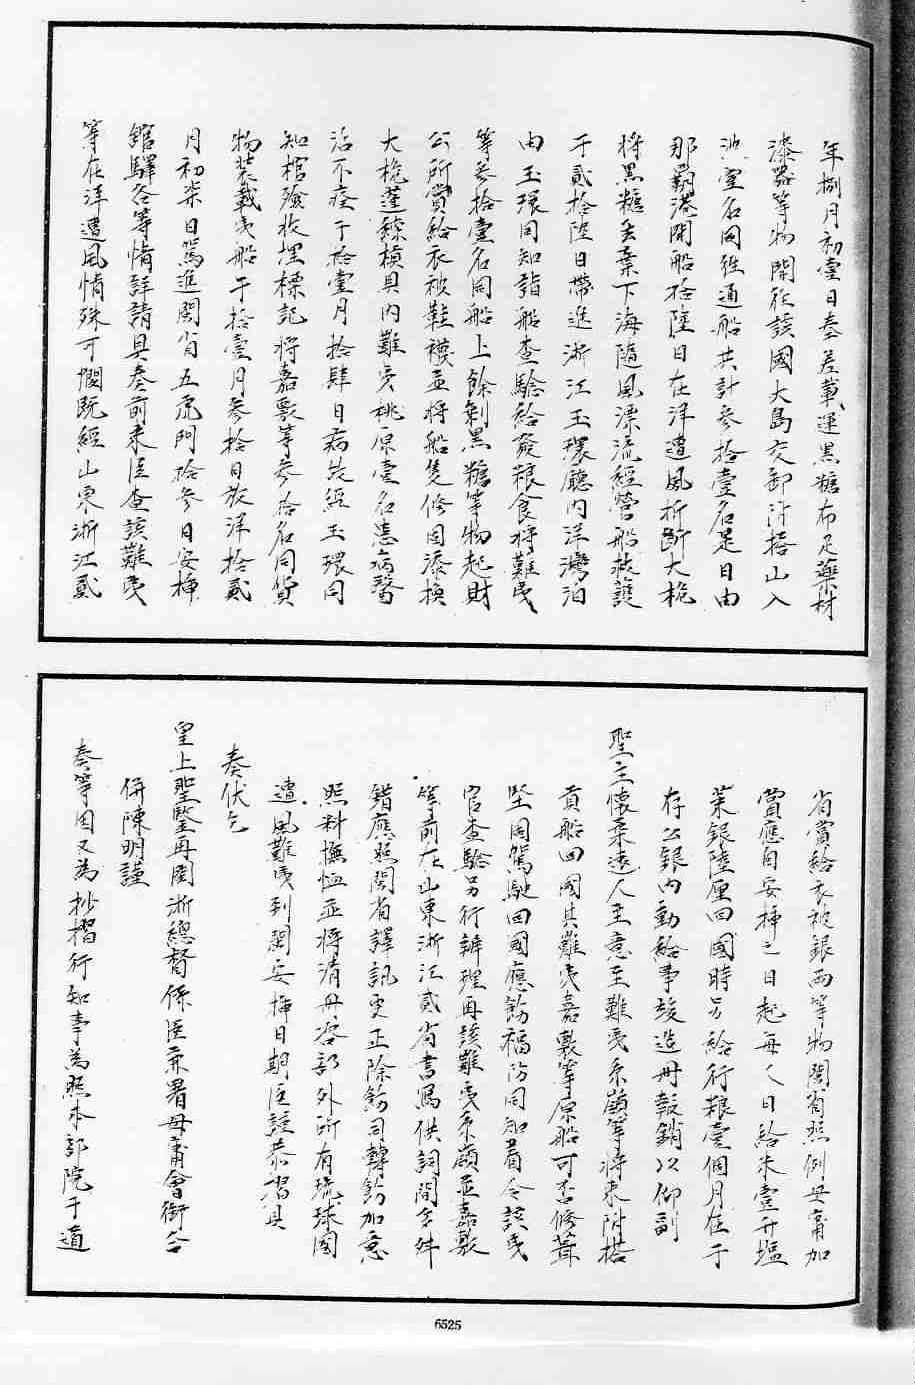 年捌月初壹日奉差載運黑糖布疋藥材
漆器等物開往該國大島交卸行搭山入
壹名同往通船共計參拾壹名是日由
那霸港開船拾陸日在洋遭風折斷大桅
將黑糖丟棄下海隨風漂流經營船救護
于貳拾陸日帶進浙江玉環廳內洋灣泊
由玉環同知詣船查驗給發粮食將難夷
等參拾壹名同船上餘剩黑糖等物起財
公所賞給衣被鞋襪並將船隻修固添換
大桅蓬繚槓具內難夷桃原壹名患病醫
治不痊于拾壹月拾肆日病故經玉環同
知棺殮收埋標記將嘉敷等參拾名同貨
物裝載夷船于拾壹月參拾日放洋拾貳
月初柒日駕進閩省五虎門拾參日安揷
館驛各等情詳請具奏前來臣查該難夷
等在洋遭風情殊可憫旣經山東浙江貳
省賞給衣被銀兩等物閩省照例毋甯加
賞應自安揷之日起每人日給米壹升塩
菜銀陸厘回國時另給行粮壹個月在于
存公銀內動給事竣造册報銷以仰副
聖主懷柔遠人至意至難夷糸嶺等將來附搭
貢船回國其難夷嘉敷等原船可否修葺
堅固駕駛回國應飭福防同知着令該夷
官查驗另行辦理再該難夷糸嶺並嘉敷
等前在山東浙江貳省書寫供詞間多舛
錯應照閩省譯訊更正除飭司轉飭加意
照料撫恤並將清册咨部外所有琉球國
遭風難夷到閩安揷日期臣謹恭摺具
奏伏乞
皇上聖鑒再閩浙總督係臣兼署毋甯會銜合
併陳明謹
奏等因又為抄摺行知事為照本部院于道
6525